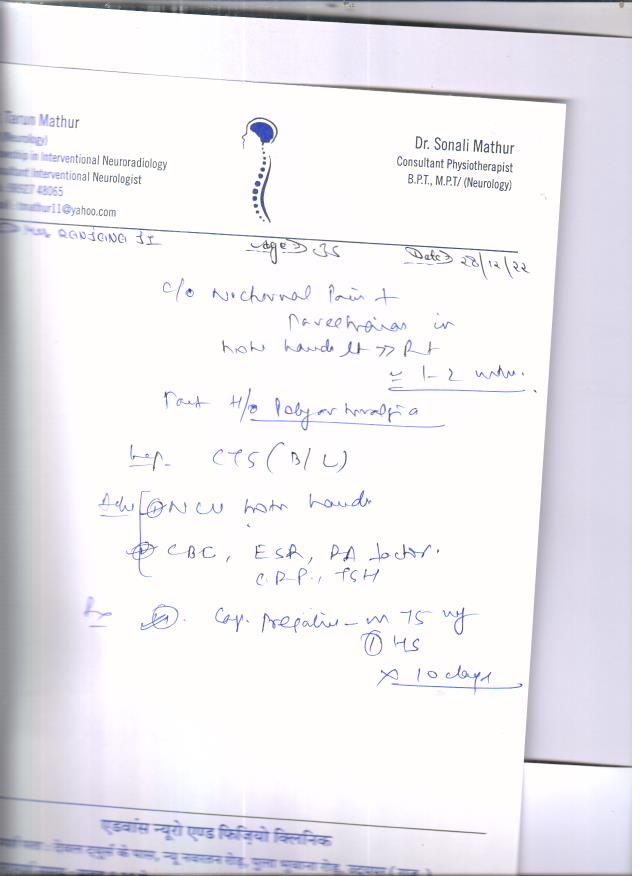 Tarun Mathur
(Neurology)
in Interventional Neuroradiology
Interventional Neurologist
48065
11@yahoo.com
Dr. Sonali Mathur
Consultant Physiotherapist
B.P.T., M.P.T/ (Neurology)
Age → 35
Date → 28/12/22
c/o Nocturnal Pain +
in
both hands Lt >> Rt
≈ 1-2 mths.
Past H/o Polyarthralgia
Imp. CTS (B/L)
Adv NCV both hands
CBC, ESR, RA factor.
C.R.P., TSH
Rx Cap. - m 75 mg
① HS
x 10 days
एडवांस न्यूरो एण्ड फिजियो क्लिनिक